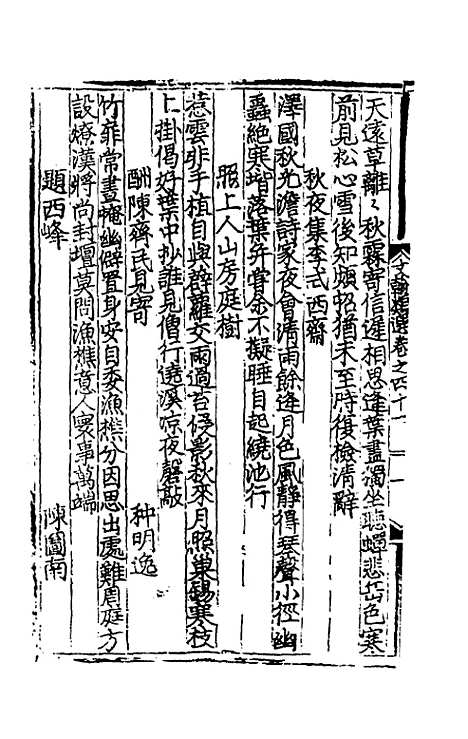 文翰類選卷之四十一 一
天遠草離〻秋霖寄信遲相思逢葉盡獨坐聽蟬悲岳色寒
前見松心雪後知頻招猶未至時復檢清辭
秋夜集李式西齋
澤國秋光澹詩家夜會清雨餘逢月色風靜得琴聲小徑幽
蟲絕寒堦落葉并賞余不擬睡自起繞池行
照上人山房庭樹
惹雲非手植自與薜蘿交雨過苔侵影秋來月照巢錫寒枝
上掛偈好葉中抄誰見僧行遶溪凉夜磬敲
酬陳齊民見寄 种明逸
竹扉常晝掩幽僻置身安自委漁樵分因思出處難周庭方
設燎漢將尚封壇莫問漁樵意人寰事萬端
題西峰 陳圖南